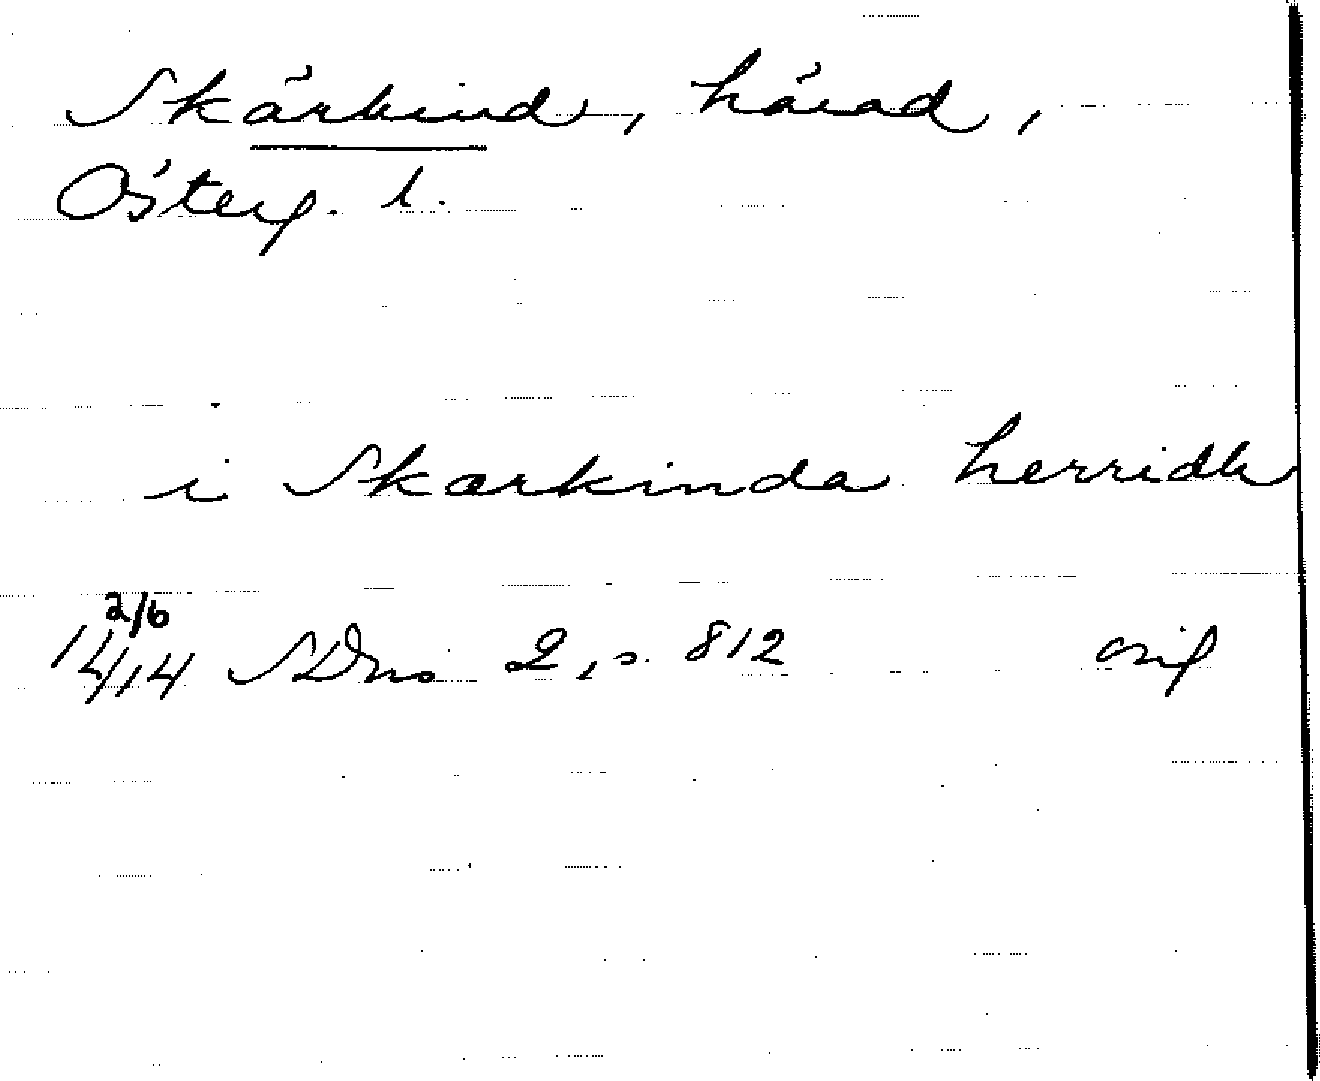 Skärkind, härad,
Österg. l.
i Skærkinda herridh
2/6
1414 SDns 2, s. 812 orig